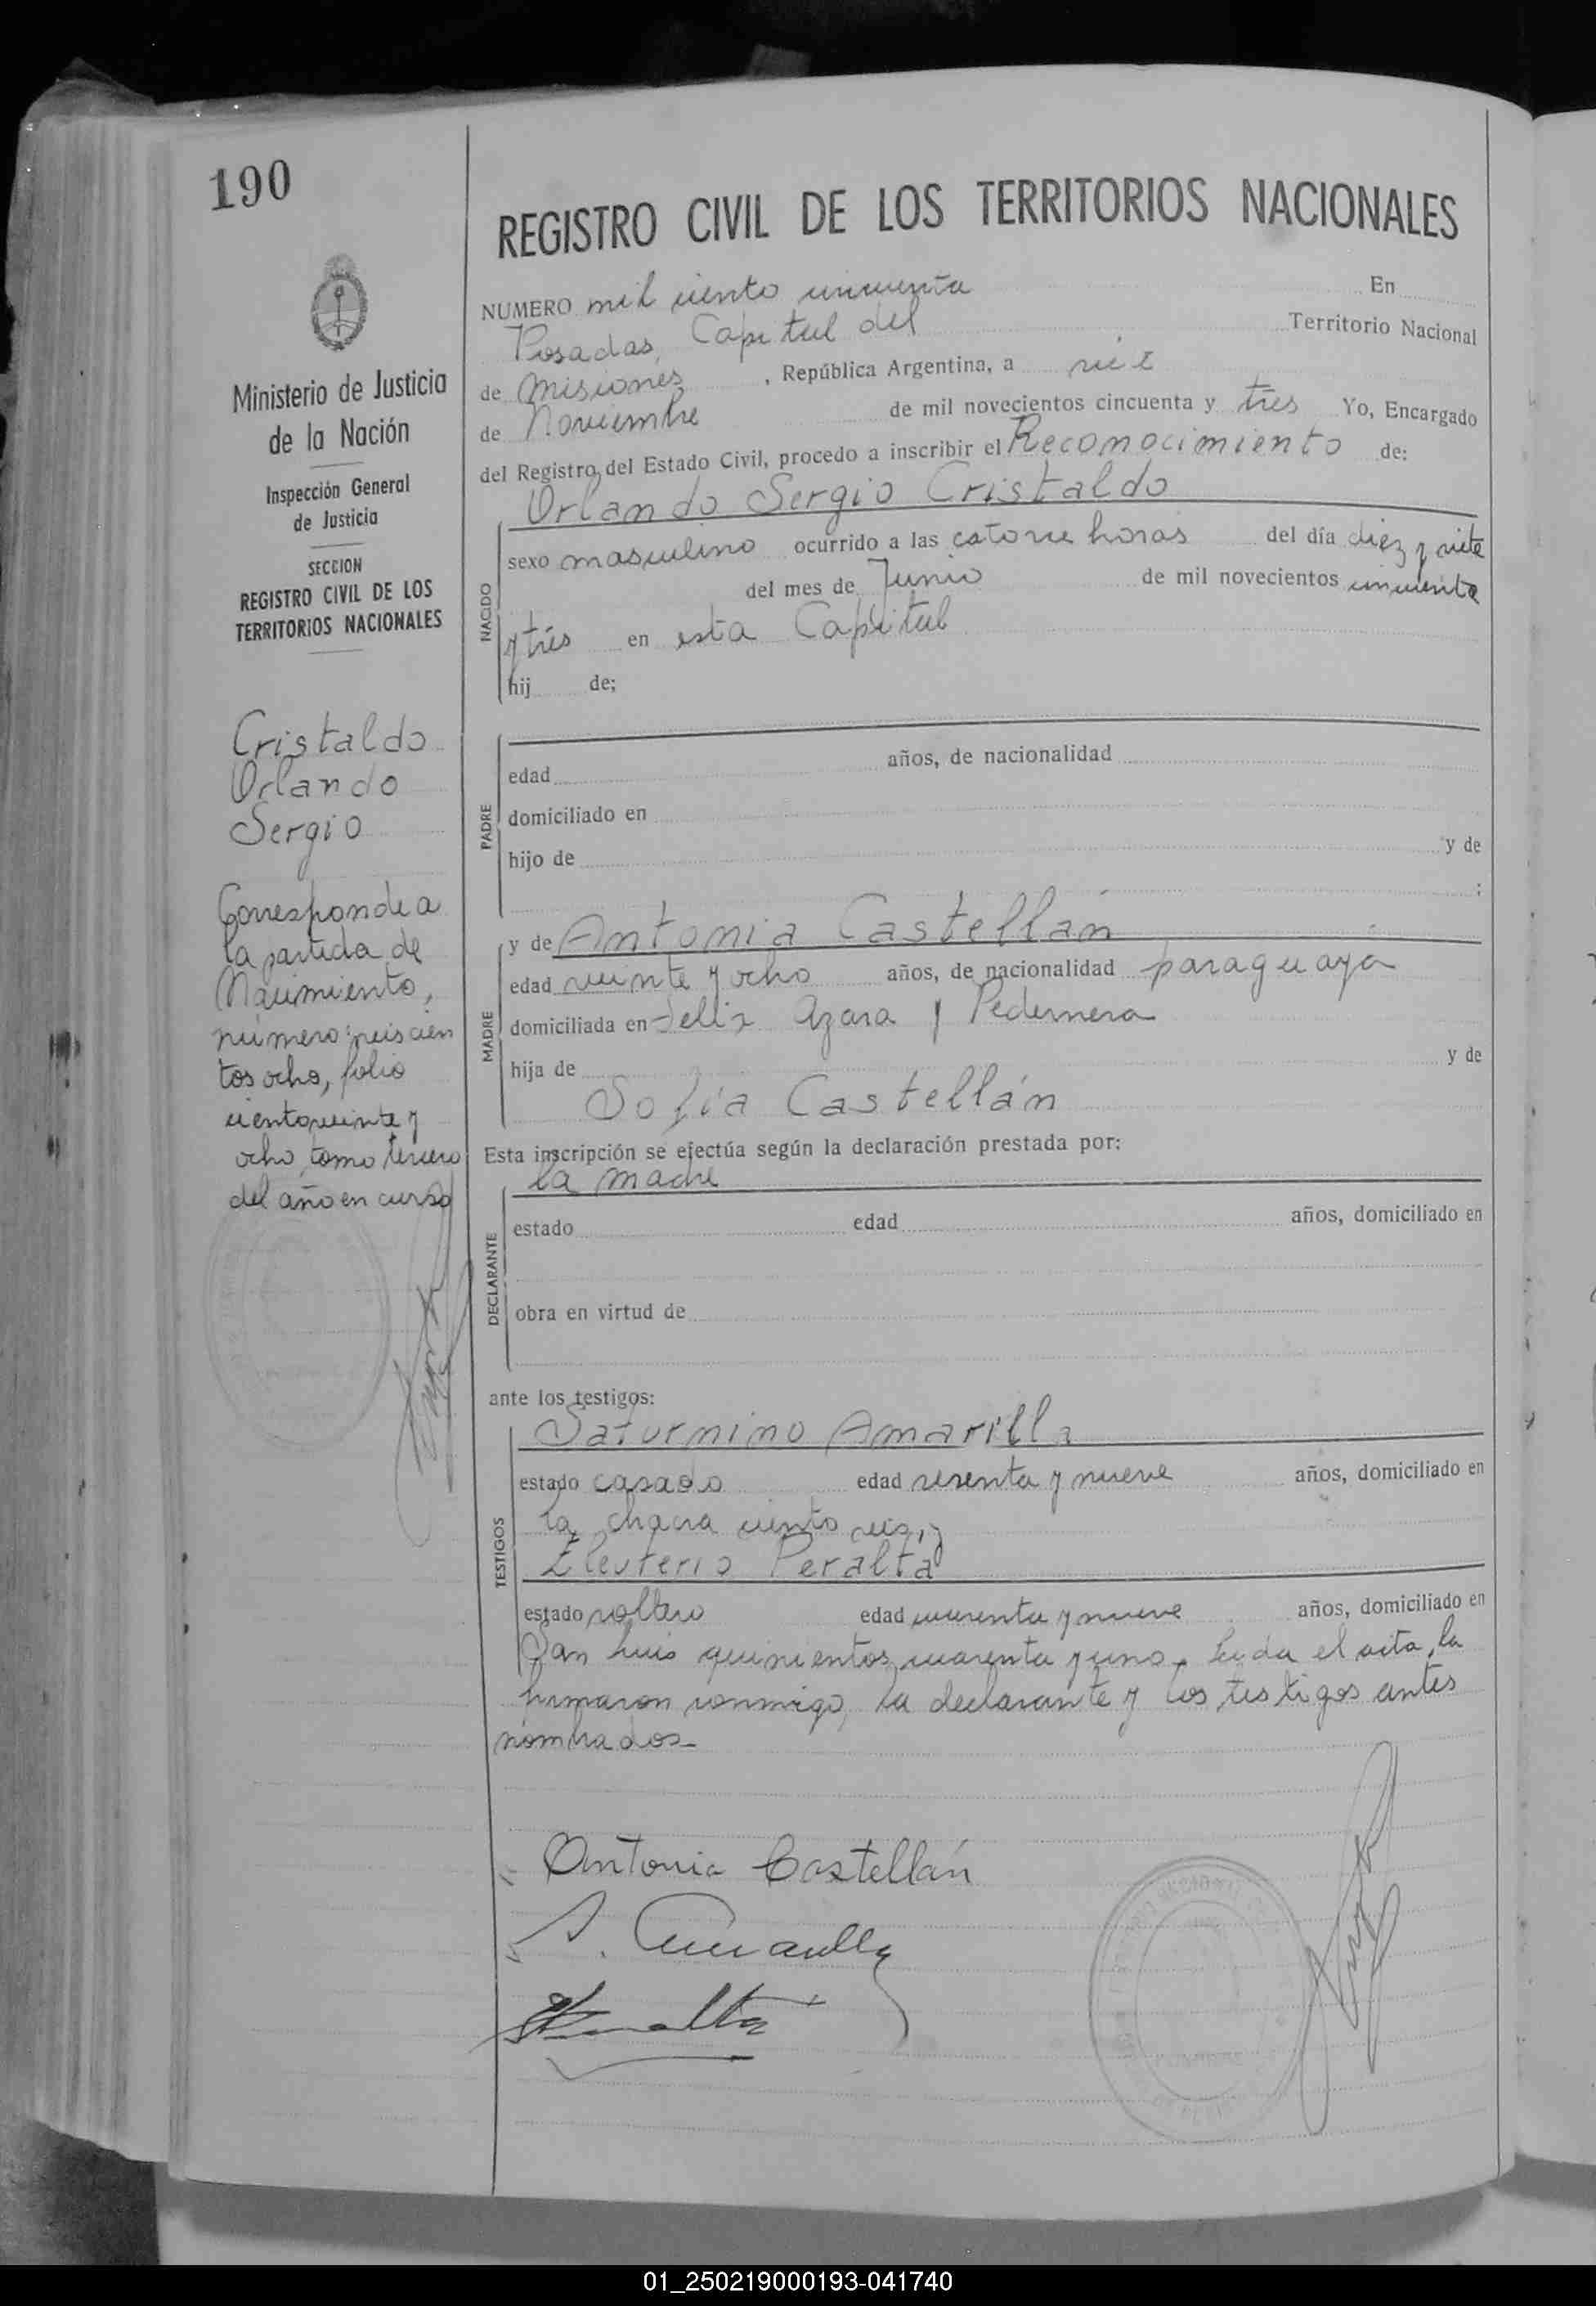 190
REGISTRO CIVIL DE LOS TERRITORIOS NACIONALES
Ministerio de Justicia
de la Nación
Inspección General
de Justicia
SECCION
REGISTRO CIVIL DE LOS
TERRITORIOS NACIONALES
Cristaldo
Orlando
Sergio
Corresponde a
la partida de
Nacimiento,
número: seis cien
tos ocho, folio
ciento veinte y
ocho tomo tercero
del año en curso
NUMERO mil ciento cincuenta En
Posadas, Capital del Territorio Nacional
de Misiones, República Argentina, a
de Noviembre de mil novecientos cincuenta y tres Yo, Encargado
del Registro del Estado Civil, procedo a inscribir el Reconocimiento de:
Orlando Sergio Cristaldo
NACIDO
sexo masculino ocurrido a las catorce horas del día diez y siete
del mes de Junio de mil novecientos cincuenta
y tres en esta Capital
hij de;
PADRE
edad años, de nacionalidad
domiciliado en
hijo de y de
:
MADRE
y de Antonia Castellán
edad veinte y ocho años, de nacionalidad paraguaya
domiciliada en Felix Azara y Pedernera
hija de y de
Sofía Castellán
Esta inscripción se efectúa según la declaración prestada por:
la madre
DECLARANTE
estado edad años, domiciliado en
obra en virtud de
ante los testigos:
TESTIGOS
Saturnino Amarilla
estado casado edad sesenta y nueve años, domiciliado en
la chacra ciento seis, y
Eleuterio Peralta
estado soltero edad cuarenta y nueve años, domiciliado en
San Luis quinientos cuarenta y uno. Leida el acta, la
firmaron conmigo, la declarante y los testigos antes
nombrados-
Antonia Castellán
S. Amarilla
Peralta
01_250219000193-041740